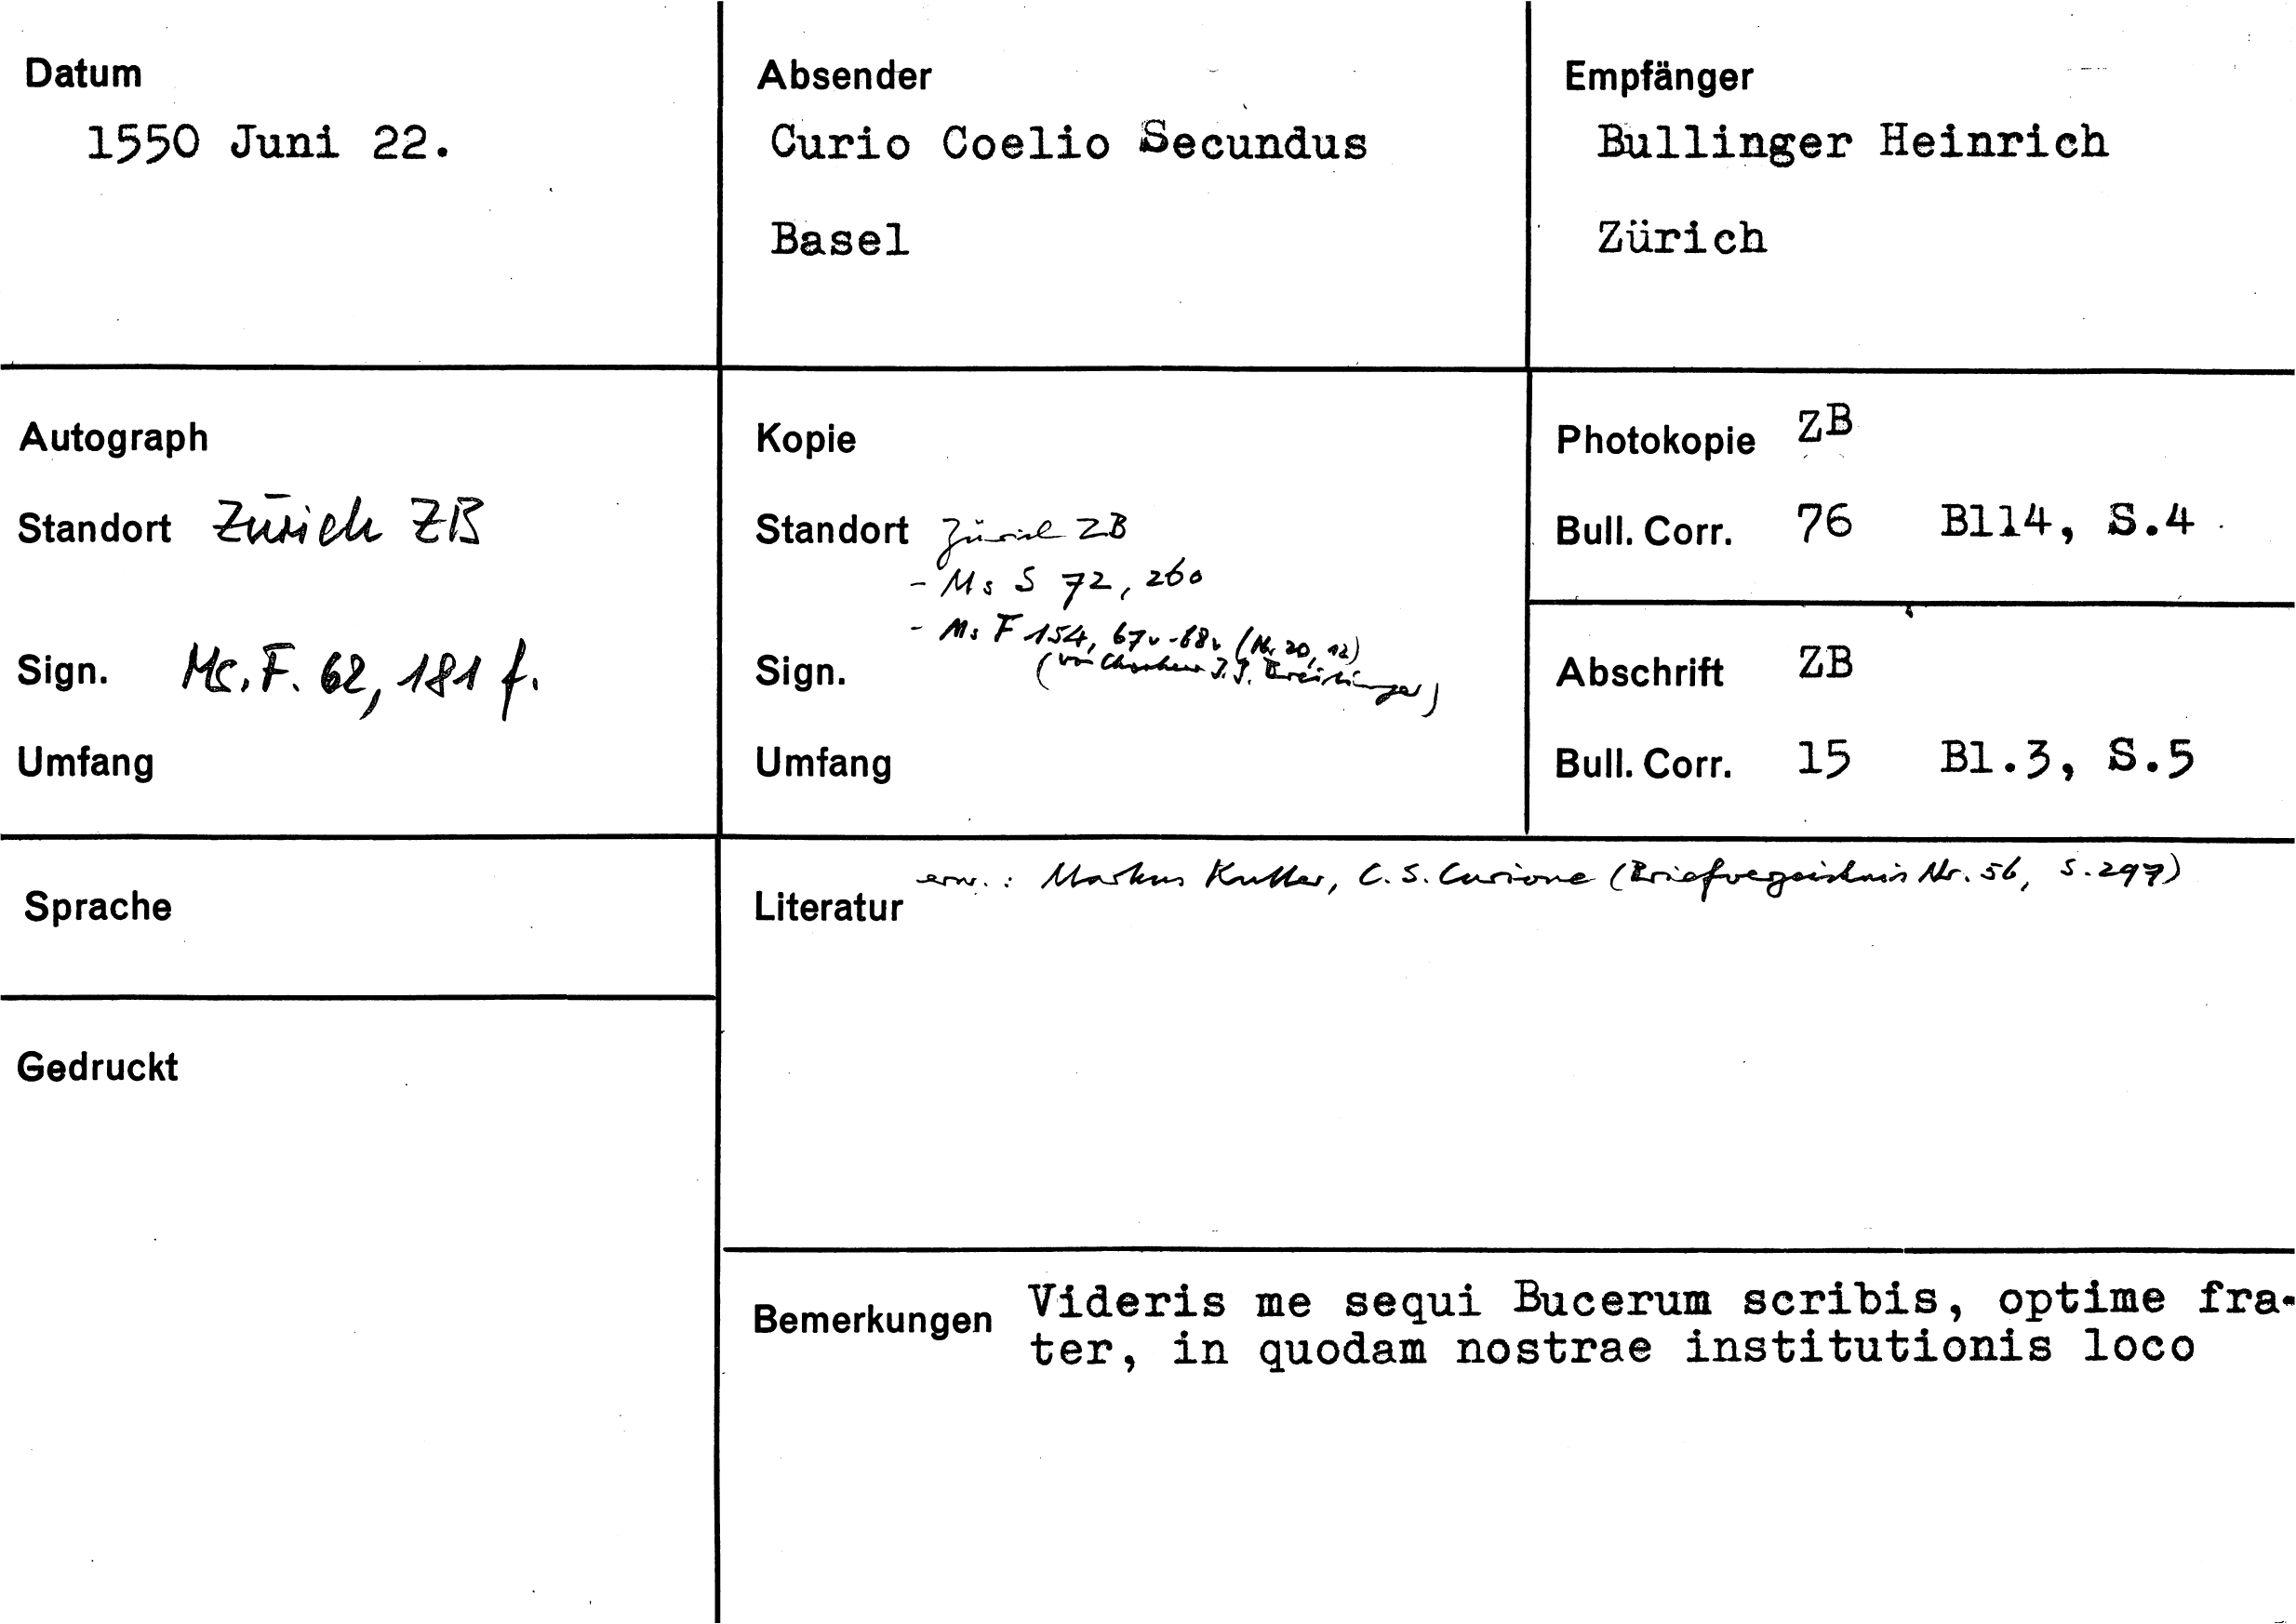 Datum
1550 Juni 22.
Absender
Curio Coelio Secundus
Basel
Empfänger
Bullinger Heinrich
Zürich
Autograph
Standort Zürich ZB
Sign. Ms. F. 62, 181 f.
Umfang
Kopie
Standort Zürich ZB
- Ms S 72, 260
- Ms F 154, 67v-68v (Nr. 20, 12)
Sign. (von Chorherr J. J. Breitinger)
Umfang
Photokopie ZB
Bull. Corr. 76 Bl14, S.4
Abschrift ZB
Bull. Corr. 15 Bl.3, S.5
Sprache
Literatur erw.: Markus Kutter, C. S. Curione (Briefverzeichnis Nr. 56, S. 297)
Gedruckt
Bemerkungen Videris me sequi Bucerum scribis, optime fra-
ter, in quodam nostrae institutionis loco